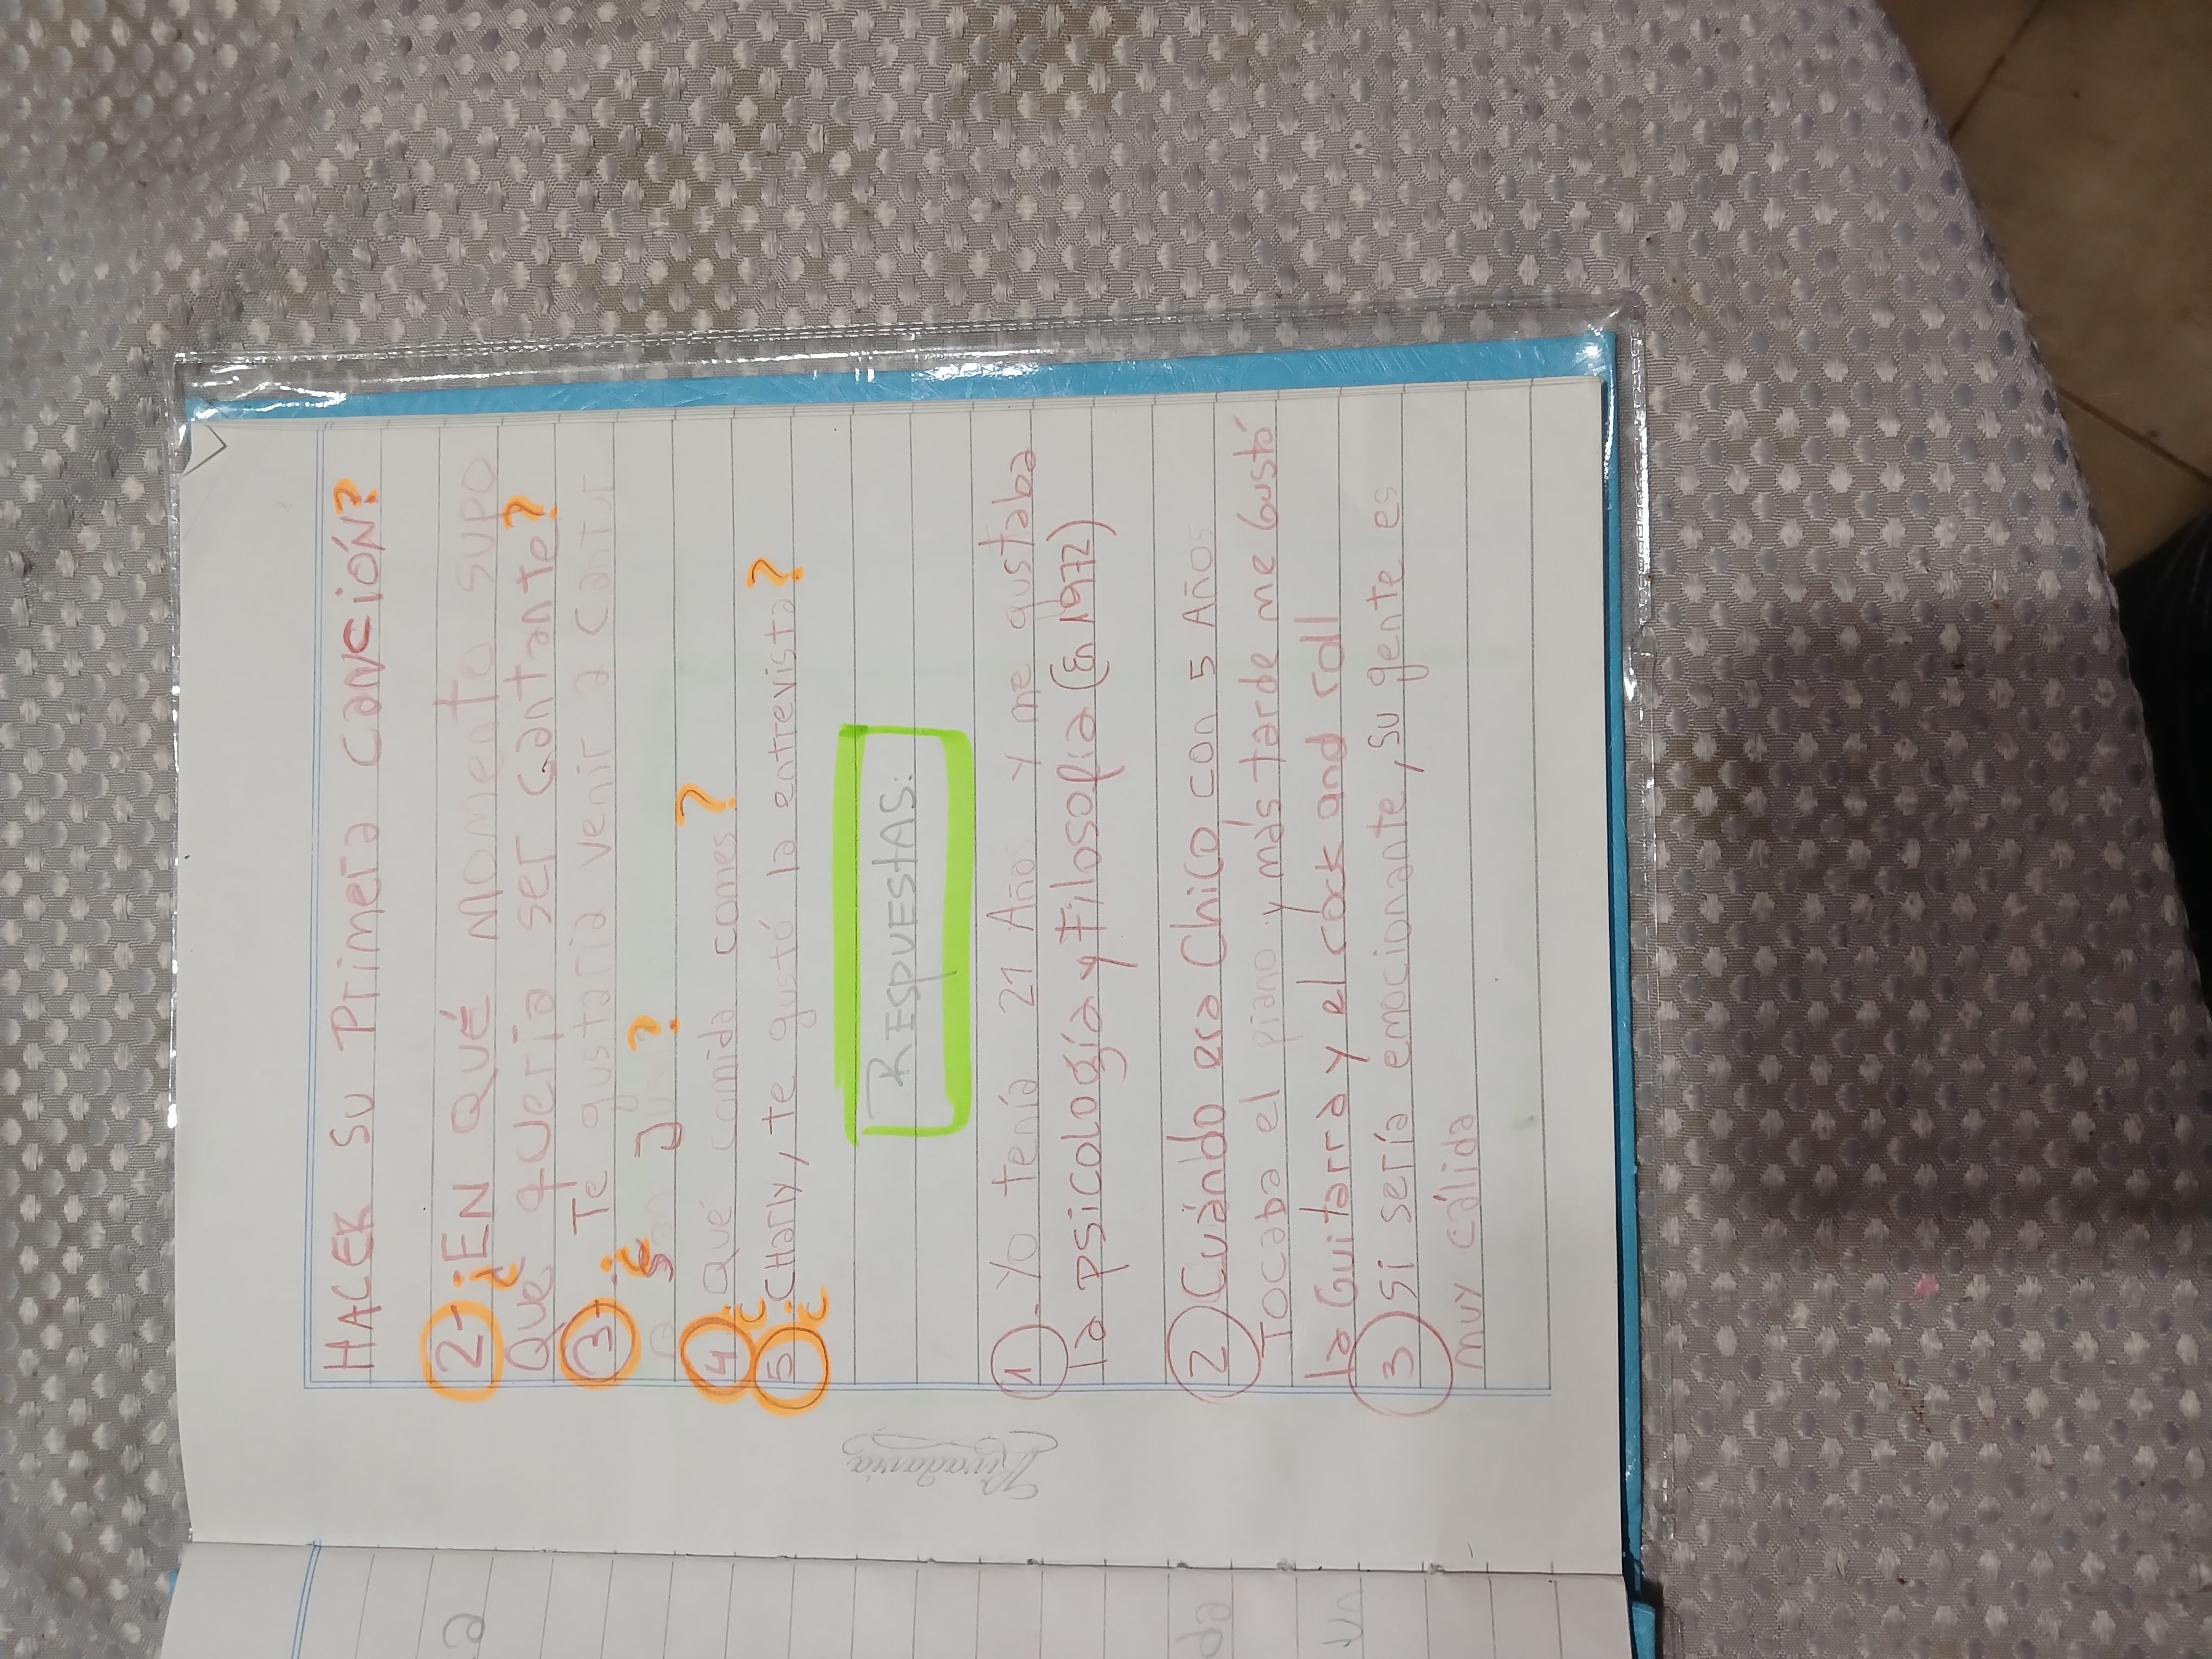 HACER SU PRIMERA CANCIÓN?
2- ¿EN QUÉ MOMENTO SUPO
QUE QUERÍA SER CANTANTE?
3- ¿Te gustaría venir a cantar
a San Juan?
4 ¿Qué comida comes?
5 ¿CHarly, te gustó la entrevista?
RESPUESTAS:
1- Yo tenía 21 Años y me gustaba
la psicología y Filosofia (En 1972)
2 Cuándo era Chico con 5 Años
Tocaba el piano y más tarde me Gustó
la Guitarra y el rock and roll
3 Sí sería emocionante, su gente es
muy cálida
Rivadavia
a
da
un